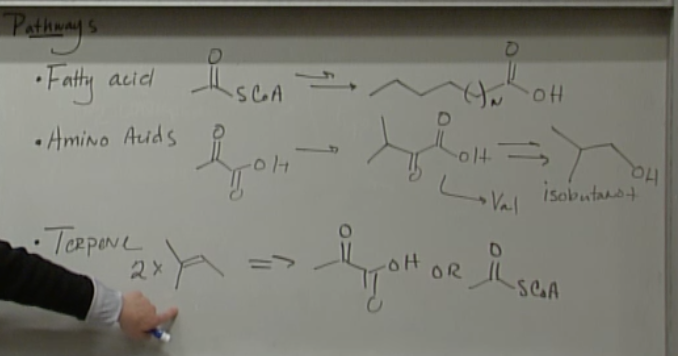 Pathways
• Fatty acid O SCoA O ( )N OH
• Amino Acids O OH O O OH O isobutanol OH
Val
• Terpene 2x O OH O OR O SCoA